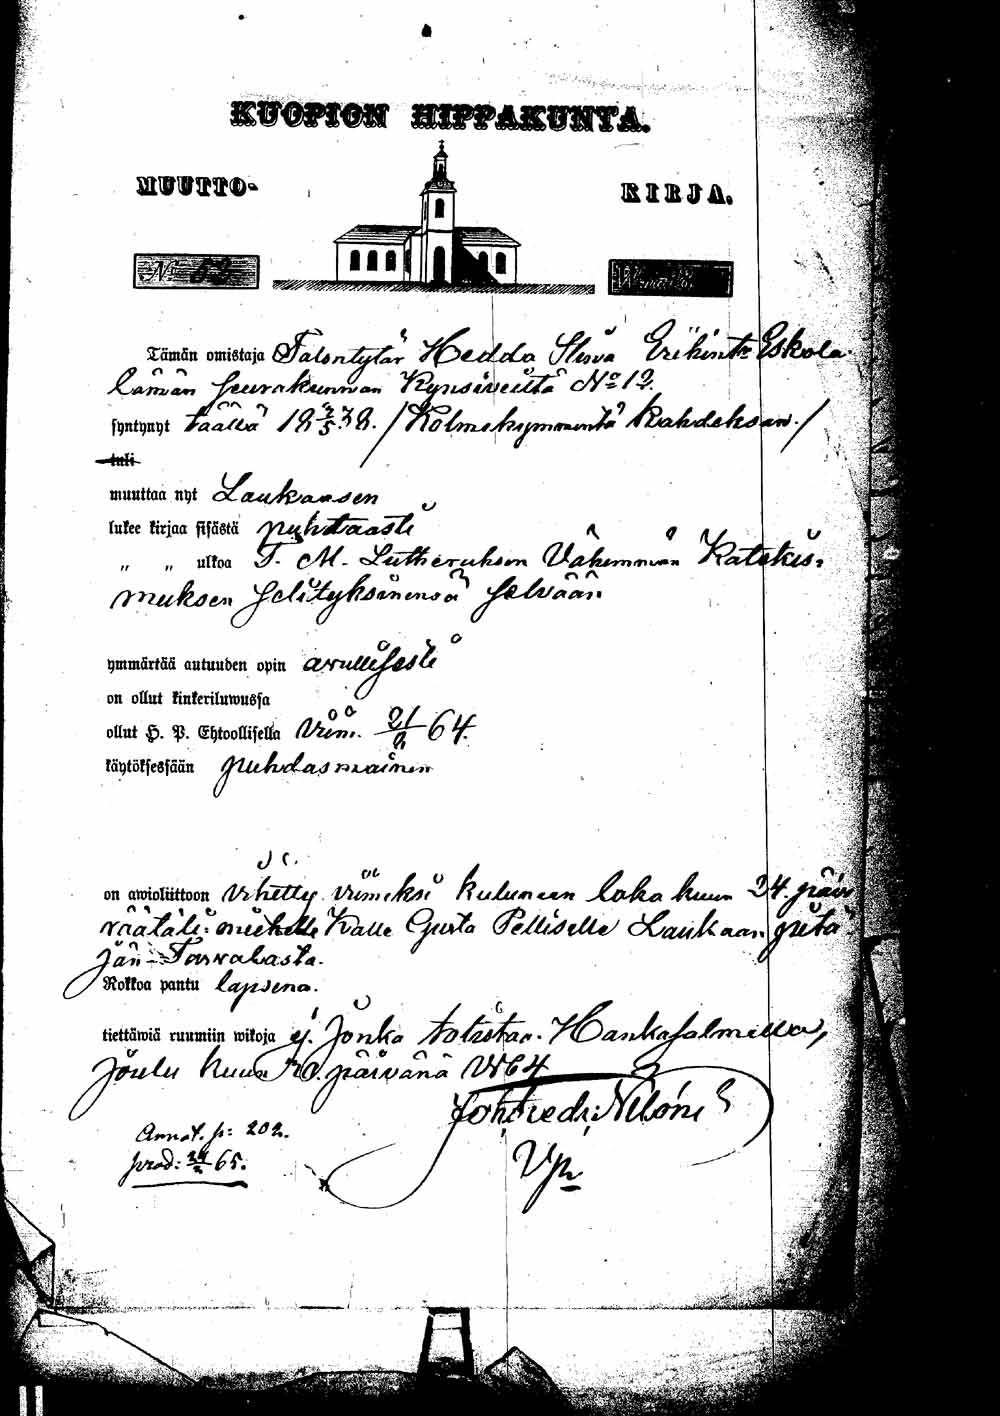 KUOPION HIPPAKUNTA.
MUUTTO- KIRJA.
No 52
Tämän omistaja Talontytär Hedda Stiva Erikint. Eskola
tämän seurakunnan Kynsiveittä No 12.
syntynyt täällä 18 5 38. / Kolmekymmentä kahdeksan. /
tuli
muuttaa nyt Laukaasen
lukee kirjaa sisästä puhtaasti
„ „ ulkoa T. M. Lutheruksen Vähemmän Katekis=
muksen Selityksinensä selvään
ymmärtää autuuden opin avullisesti
on ollut kinkeriluwussa
ollut H. P. Ehtoollisella Viim. 21 64.
käytöksessään puhdasmainen
on awioliittoon vihitty viimeksi kuluneen loka kuun 24. päiv
räätäli- miehelle Kalle Gusta Pelliselle Laukaan pitä
jän Tarvalasta.
Rokkoa pantu lapsena.
tiettäwiä ruumiin wikoja ej. Jonka totistaa. Hankasalmella,
Joulu kuun päivänä 1864
Joh: Fredr: Nilóni
Vpr
Annot. p: 202.
prod: 65.